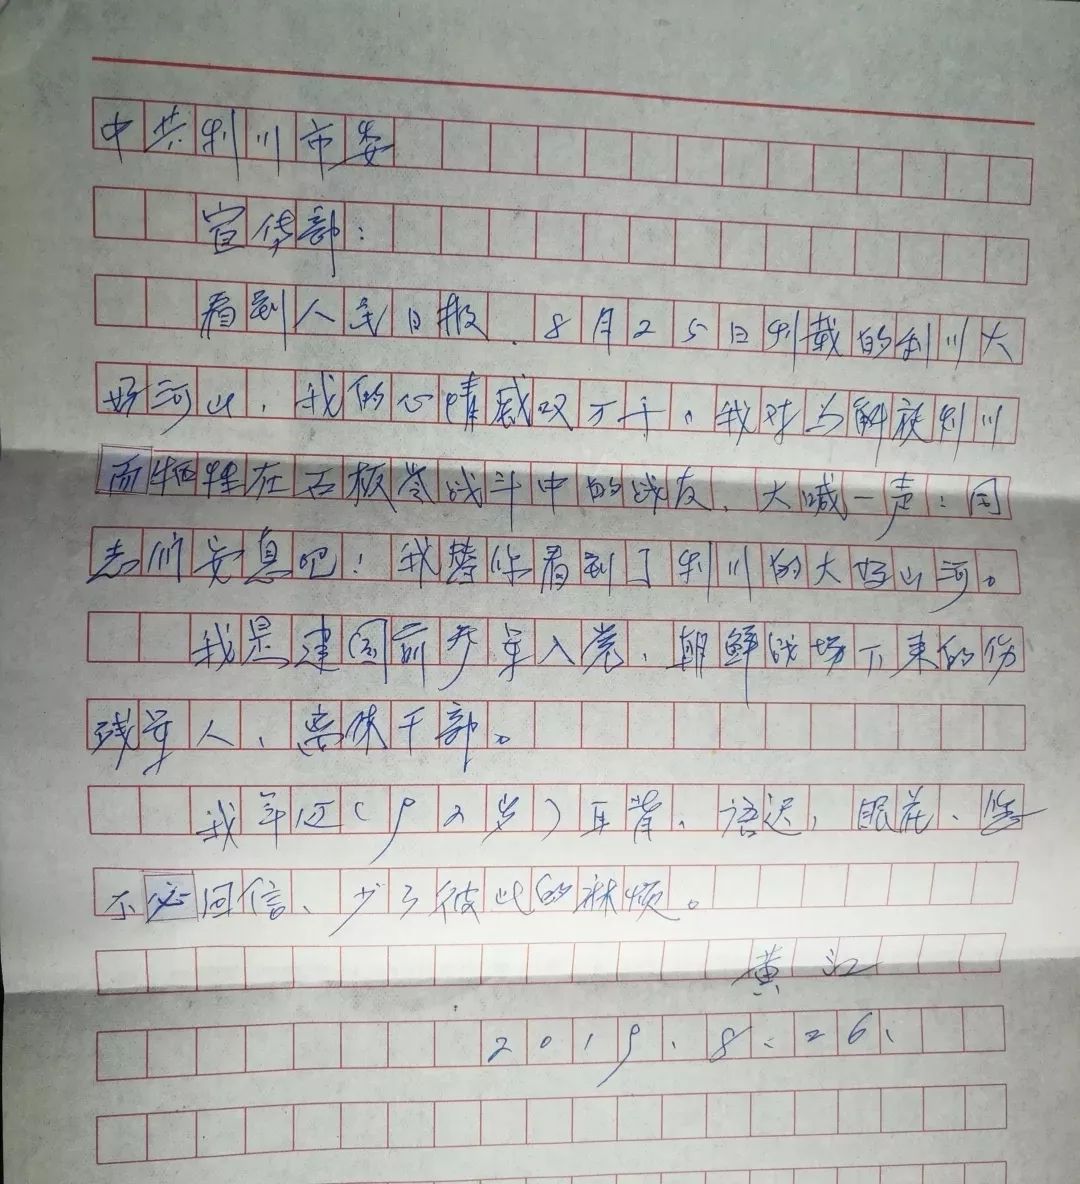 中共利川市委
宣传部：
看到人民日报、8月25日刊载的利川大
好河山，我的心情感叹万千。我对与解放利川
而牺牲在石板岭战斗中的战友，大喊一声：同
志们安息吧！我替你看到了利川的大好山河。
我是建国前参军入党、朝鲜战场下来的伤
残军人、离休干部。
我年迈（92岁）耳背、语迟，眼花、
不必回信、少了彼此的麻烦。
黄江
2019.8.26.